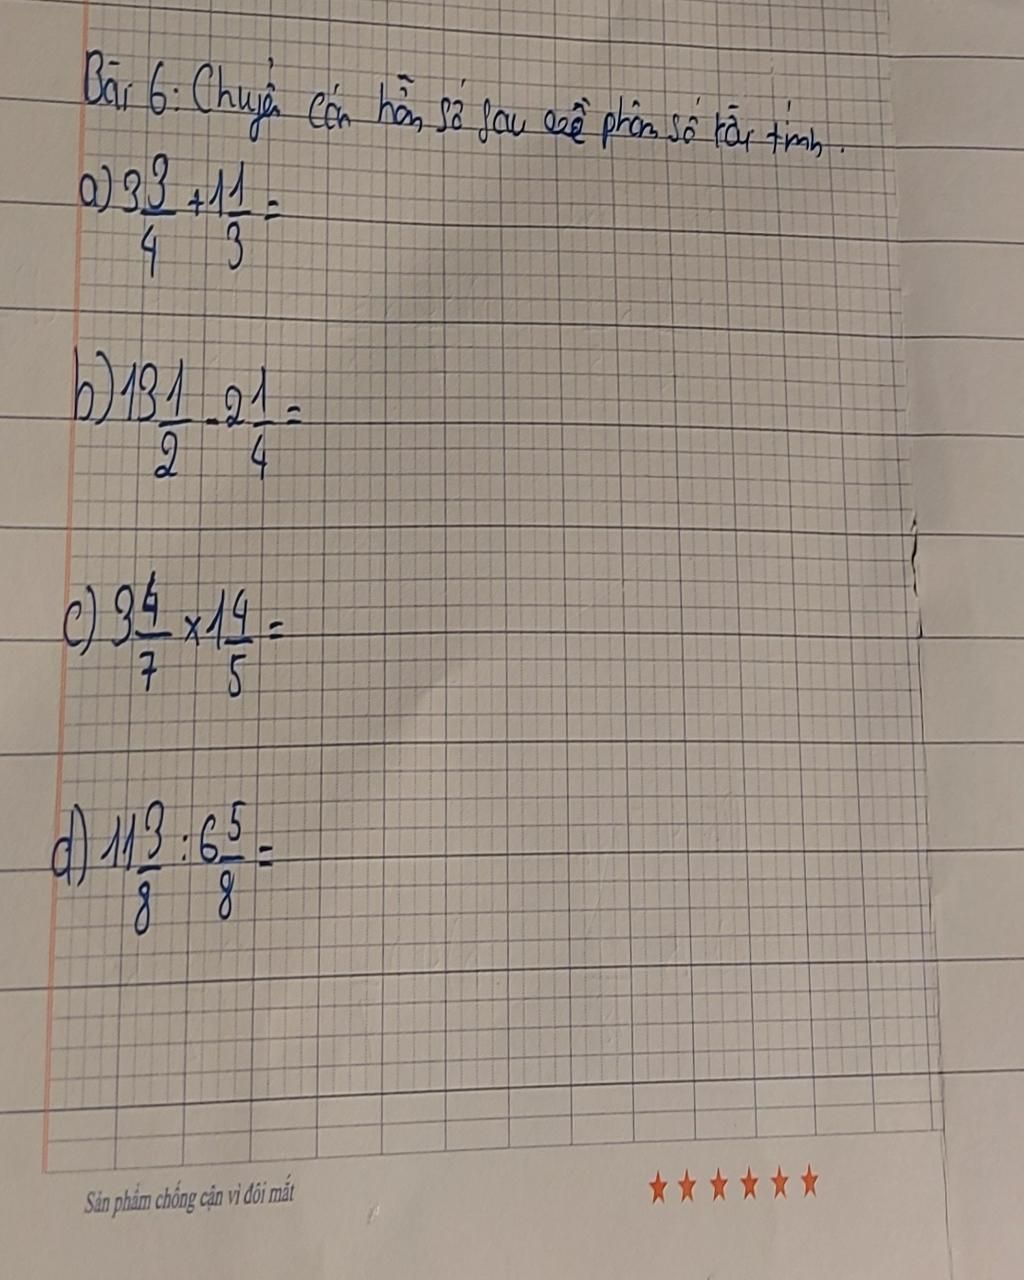 Bài 6: Chuyển các hỗn số sau về phân số rồi tính.
a) 3 3/4 + 1 1/3 =
b) 13 1/2 - 2 1/4 =
c) 3 4/7 × 1 4/5 =
d) 11 3/8 : 6 5/8 =
Sản phẩm chống cận vì đôi mắt